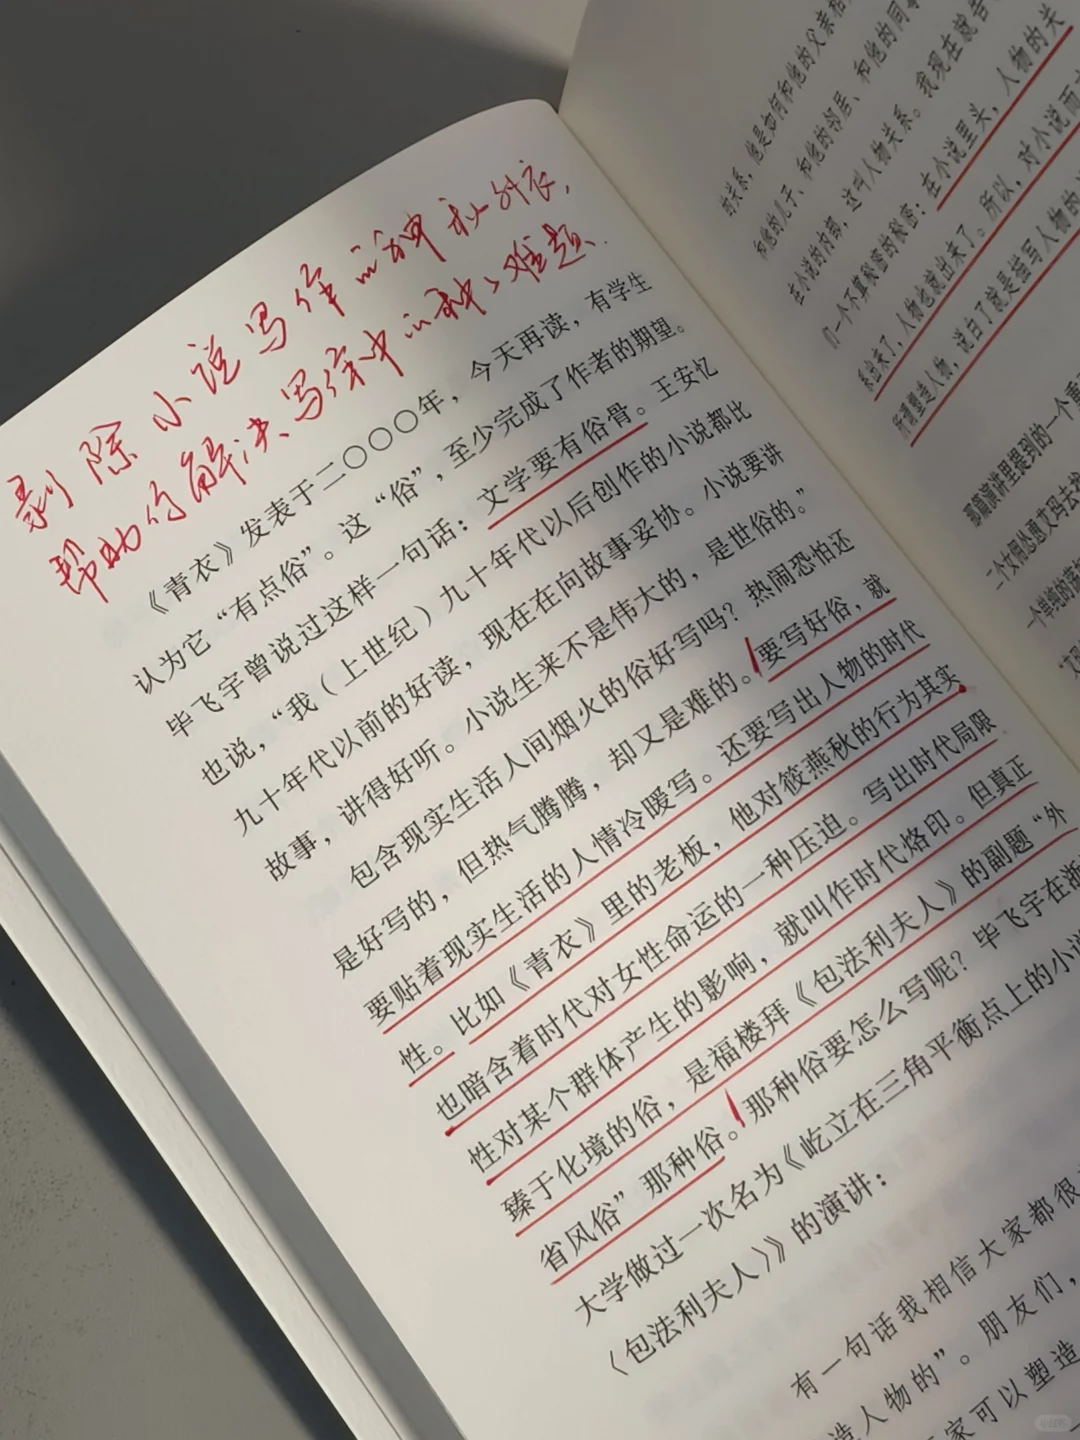 剥除小说写作的神秘外衣,
帮助你解决写作中的种种难题.
《青衣》发表于二〇〇〇年，今天再读，有学生
认为它“有点俗”。这“俗”，至少完成了作者的期望。
毕飞宇曾说过这样一句话：文学要有俗骨。王安忆
也说，“我（上世纪）九十年代以后创作的小说都比
九十年代以前的好读，现在在向故事妥协。小说要讲
故事，讲得好听。小说生来不是伟大的，是世俗的。”
包含现实生活人间烟火的俗好写吗？热闹恐怕还
是好写的，但热气腾腾，却又是难的。要写好俗，就
要贴着现实生活的人情冷暖写。还要写出人物的时代
性。比如《青衣》里的老板，他对筱燕秋的行为其实
也暗含着时代对女性命运的一种压迫。写出时代局限
性对某个群体产生的影响，就叫作时代烙印。但真正
臻于化境的俗，是福楼拜《包法利夫人》的副题“外
省风俗”那种俗。那种俗要怎么写呢？毕飞宇在浙
大学做过一次名为《屹立在三角平衡点上的小说
〈包法利夫人〉》的演讲：
有一句话我相信大家都很
造人物的”。朋友们，
家可以塑造
的关系，他是如何和他的父亲相
和他的儿子、和他的邻居、和他的同事
在小说的内部，这叫人物关系。我现在就告
们一个不算秘密的秘密：在小说里头，人物的关
系出来了，人物也就出来了。所以，对小说而
所谓塑造人物，说白了就是描写人物的
那篇演讲里提到的一个重
二个女佣怂恿艾玛去找
一个单纯的